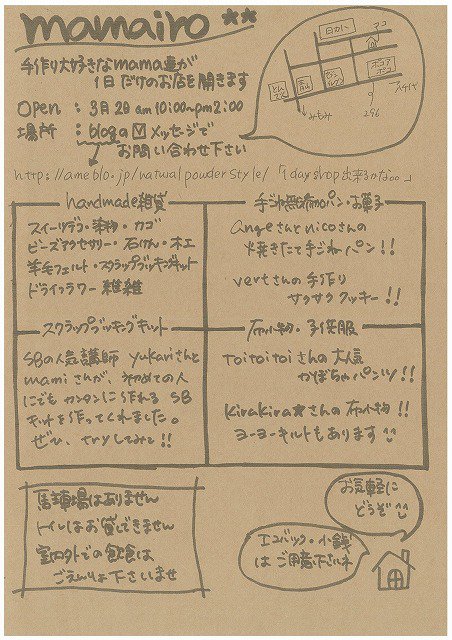 mamairo **
手作り大好きなmama達が
1日だけのお店を開きます
Open : 3月2日 am10:00〜pm2:00
場所 : blogの メッセージで
お問い合わせ下さい
http://ameblo.jp/naturalpowderstyle/ 「1dayshop出来るかな。。」
handmade雑貨
スイーツデコ・染物・カゴ
ビーズアクセサリー・石けん・木工
羊毛フェルト・スクラップブッキングキット
ドライフラワー 雑雑
手ごね無添加パン・お菓子
angeさんとnicoさんの
焼きたて手ごねパン!!
vertさんの手作り
サクサククッキー!!
スクラップブッキングキット
SBの人気講師 yukariさんと
mamiさんが、初めての人
にでもカンタンに作れる SB
キットを作ってくれました。
ぜひ、tryしてみて!!
布小物・子供服
toitoitoiさんの大人気
かぼちゃパンツ!!
kirakira★さんの布小物!!
ヨーヨーキルトもあります
駐車場はありません
トイレはお貸しできません
室内外での飲食は
ごえんりょ下さいませ
お気軽に
どうぞ
エコバック・小銭
はご用意下さいネ
ココ
296